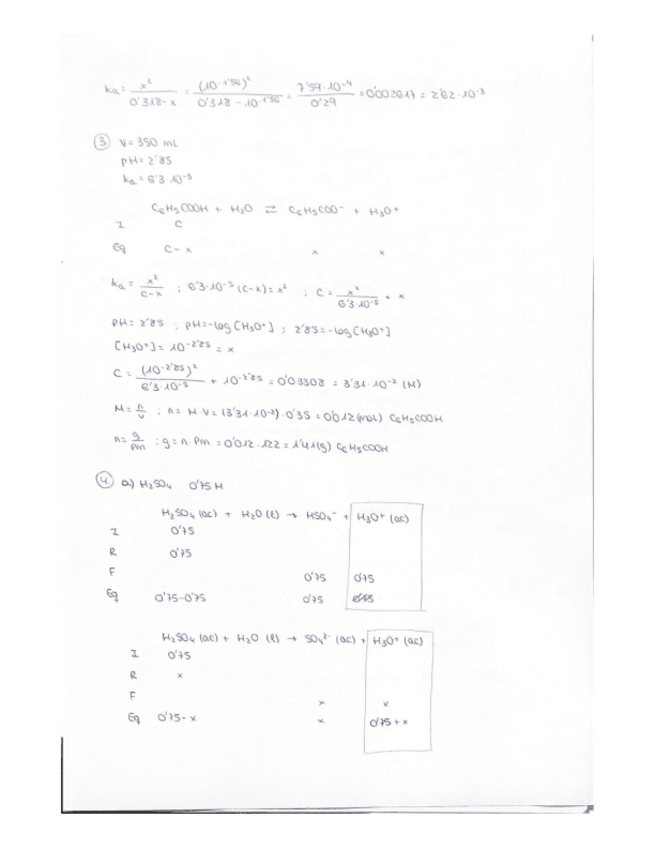 ka = x² / 0'318-x = (10^-1'56)² / 0'318 - 10^-1'56 = 7'59·10⁻⁴ / 0'29 = 0'002617 = 2'62·10⁻³
③ V= 350 mL
pH= 2'85
ka = 6'3·10⁻⁵
C6H5COOH + H2O ⇄ C6H5COO⁻ + H3O⁺
I C
Eq C-x x x
ka = x² / C-x ; 6'3·10⁻⁵ (C-x) = x² ; C = x² / 6'3·10⁻⁵ + x
pH= 2'85 ; pH=-log [H3O⁺] ; 2'85=-log[H3O⁺]
[H3O⁺] = 10^-2'85 = x
C = (10^-2'85)² / 6'3·10⁻⁵ + 10^-2'85 = 0'03308 = 3'31·10⁻² (M)
M = n/V ; n = M·V = (3'31·10⁻²)·0'35 = 0'012 (mol) C6H5COOH
n = g/Pm ; g = n·Pm = 0'012·122 = 1'41 (g) C6H5COOH
④ a) H2SO4 0'75 M
H2SO4 (ac) + H2O (l) → HSO4⁻ + H3O⁺ (ac)
I 0'75
R 0'75
F 0'75 0'75
Eq 0'75-0'75 0'75
H2SO4 (ac) + H2O (l) → SO4²⁻ (ac) + H3O⁺ (ac)
I 0'75
R x
F x x
Eq 0'75-x x 0'75+x